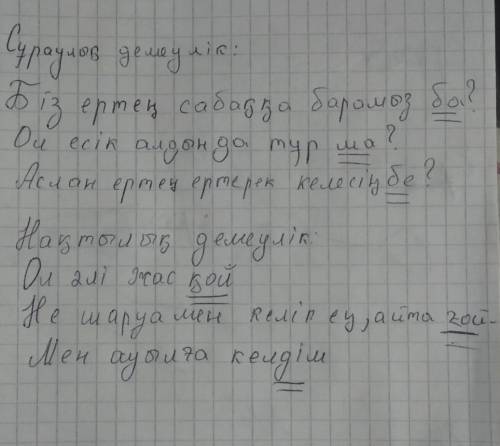 Сұраулық демеулік:
Біз ертең сабаққа барамыз ба?
Ол есік алдында тұр ма?
Аслан ертең ертерек келесің бе?
Нақтылық демеулік:
Ол әлі жас қой
Не шаруамен келіп ең, айта ғой.
Мен ауылға келдім